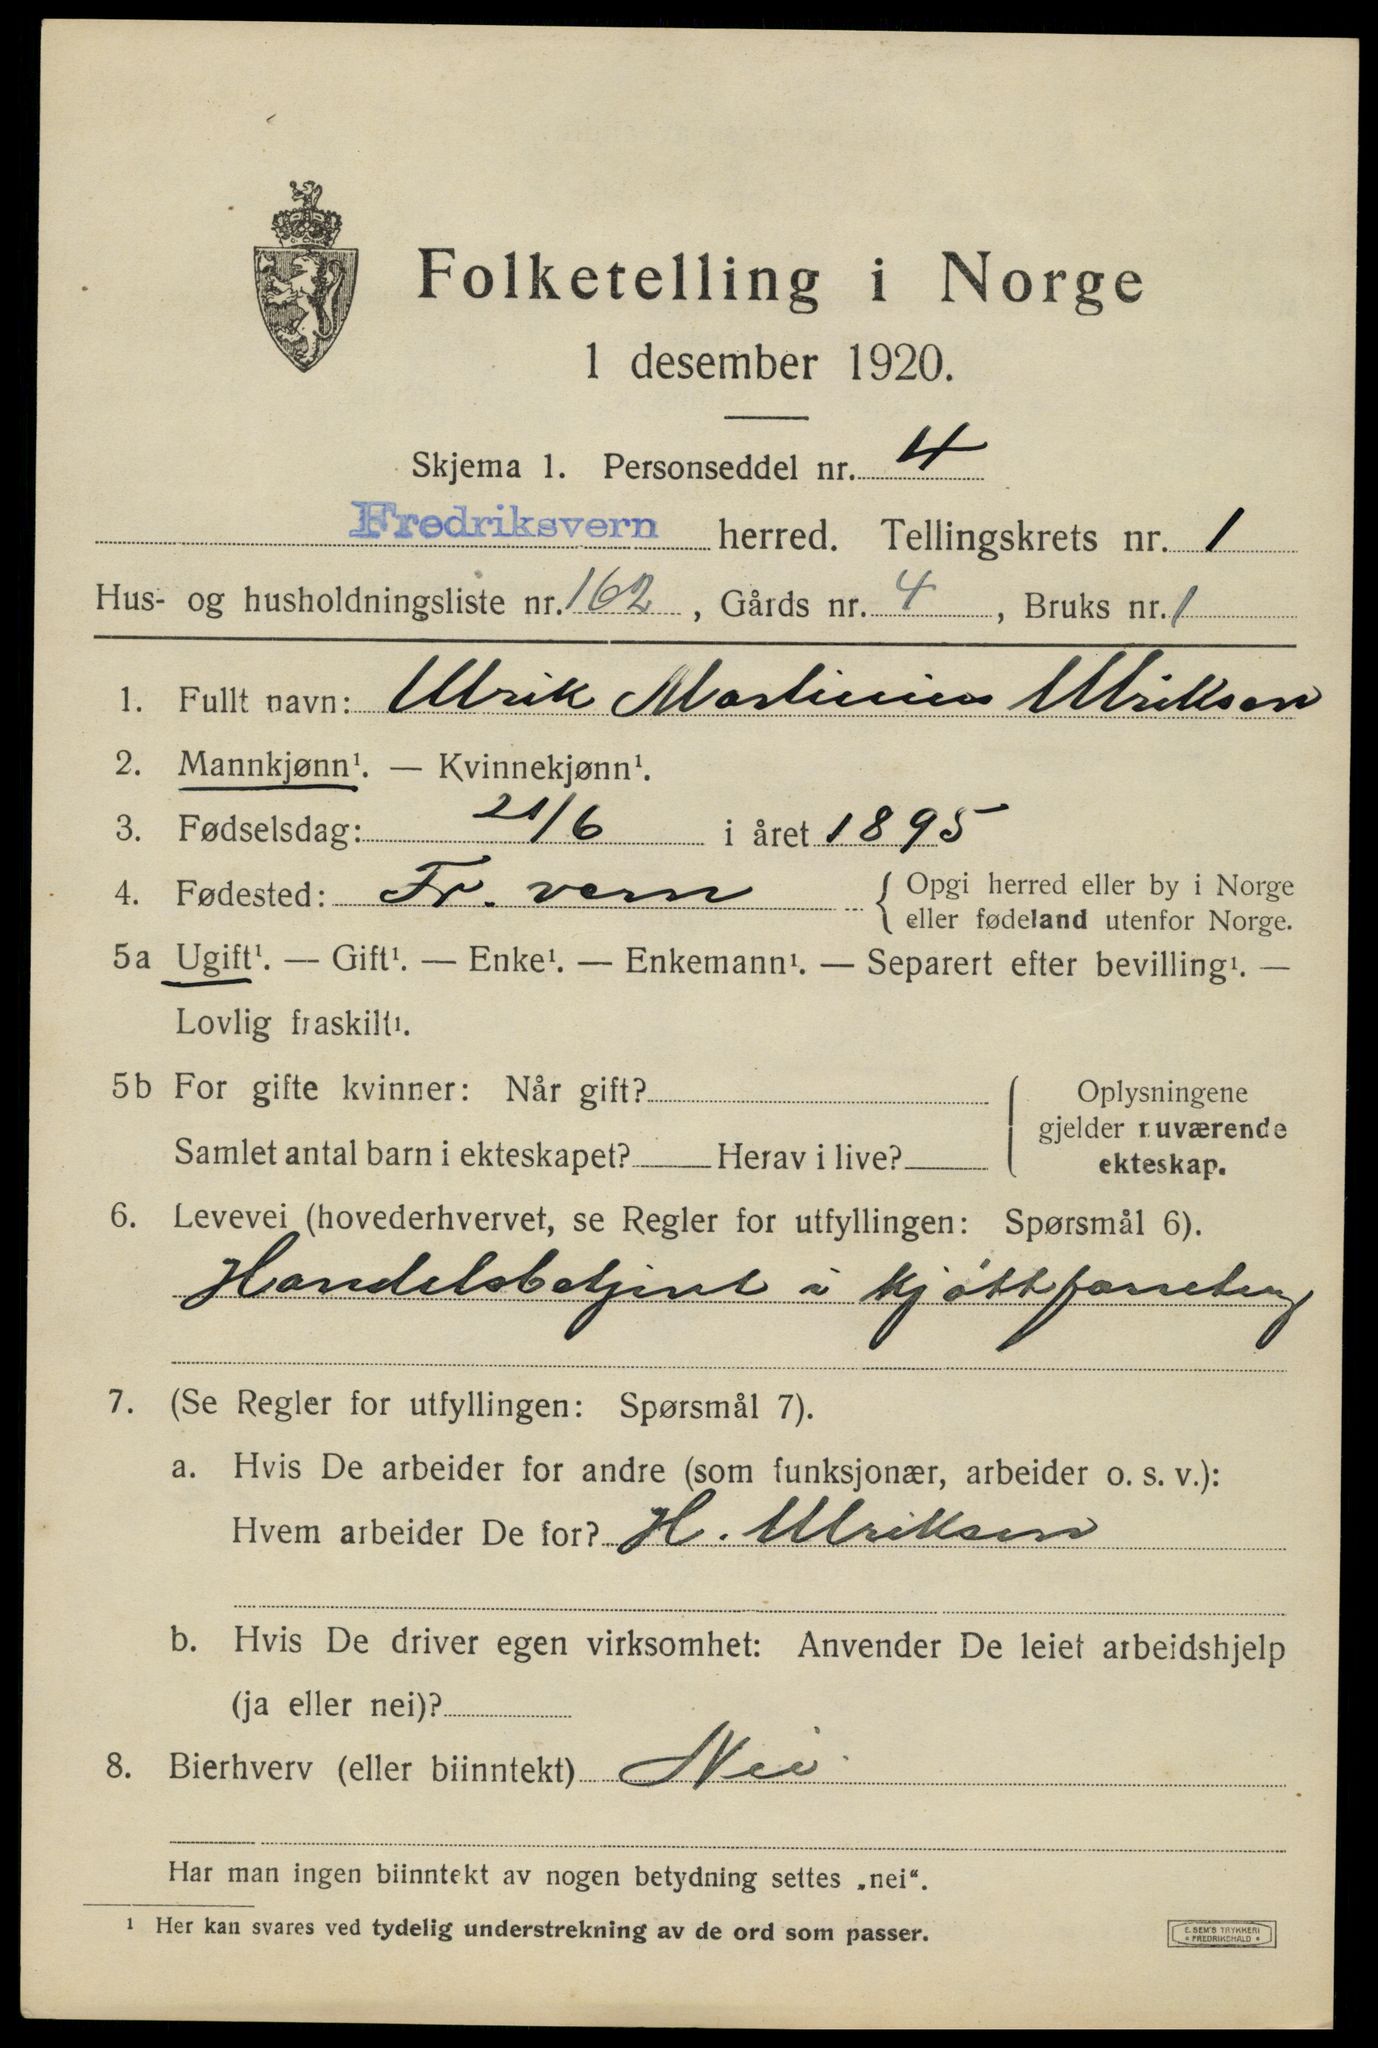 Folketelling i Norge
1 desember 1920.
Skjema 1. Personseddel nr. 4
Fredriksvern herred. Tellingskrets nr. 1
Hus- og husholdningsliste nr. 162, Gårds nr. 4, Bruks nr. 1
1. Fullt navn: Ulrik Martinius Ulriksen
2. Mannkjønn¹. — Kvinnekjønn¹.
3. Fødselsdag: 21/6 i året 1895
4. Fødested: Fr. vern { Opgi herred eller by i Norge
eller fødeland utenfor Norge.
5a Ugift¹. — Gift¹. — Enke¹. — Enkemann¹. — Separert efter bevilling¹. —
Lovlig fraskilt¹.
5b For gifte kvinner: Når gift?
Samlet antal barn i ekteskapet? Herav i live?
Oplysningene
gjelder nuværende
ekteskap.
6. Levevei (hovederhvervet, se Regler for utfyllingen: Spørsmål 6).
Handelsbetjent i kjøttforretning
7. (Se Regler for utfyllingen: Spørsmål 7).
a. Hvis De arbeider for andre (som funksjonær, arbeider o. s. v.):
Hvem arbeider De for? H. Ulriksen
b. Hvis De driver egen virksomhet: Anvender De leiet arbeidshjelp
(ja eller nei)?
8. Bierhverv (eller biinntekt) Nei
Har man ingen biinntekt av nogen betydning settes „nei“.
¹ Her kan svares ved tydelig understrekning av de ord som passer.
E. SEM'S TRYKKERI
* FREDRIKSHALD *